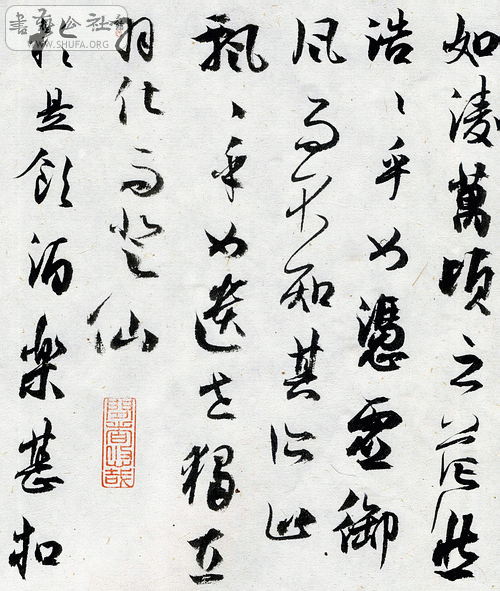 如淩萬頃之茫然
浩〻乎如憑虛御
風而不知其所止
飄〻乎如遺世獨立
羽化而登仙
於是飲酒樂甚扣
書法公社
WWW.SHUFA.ORG